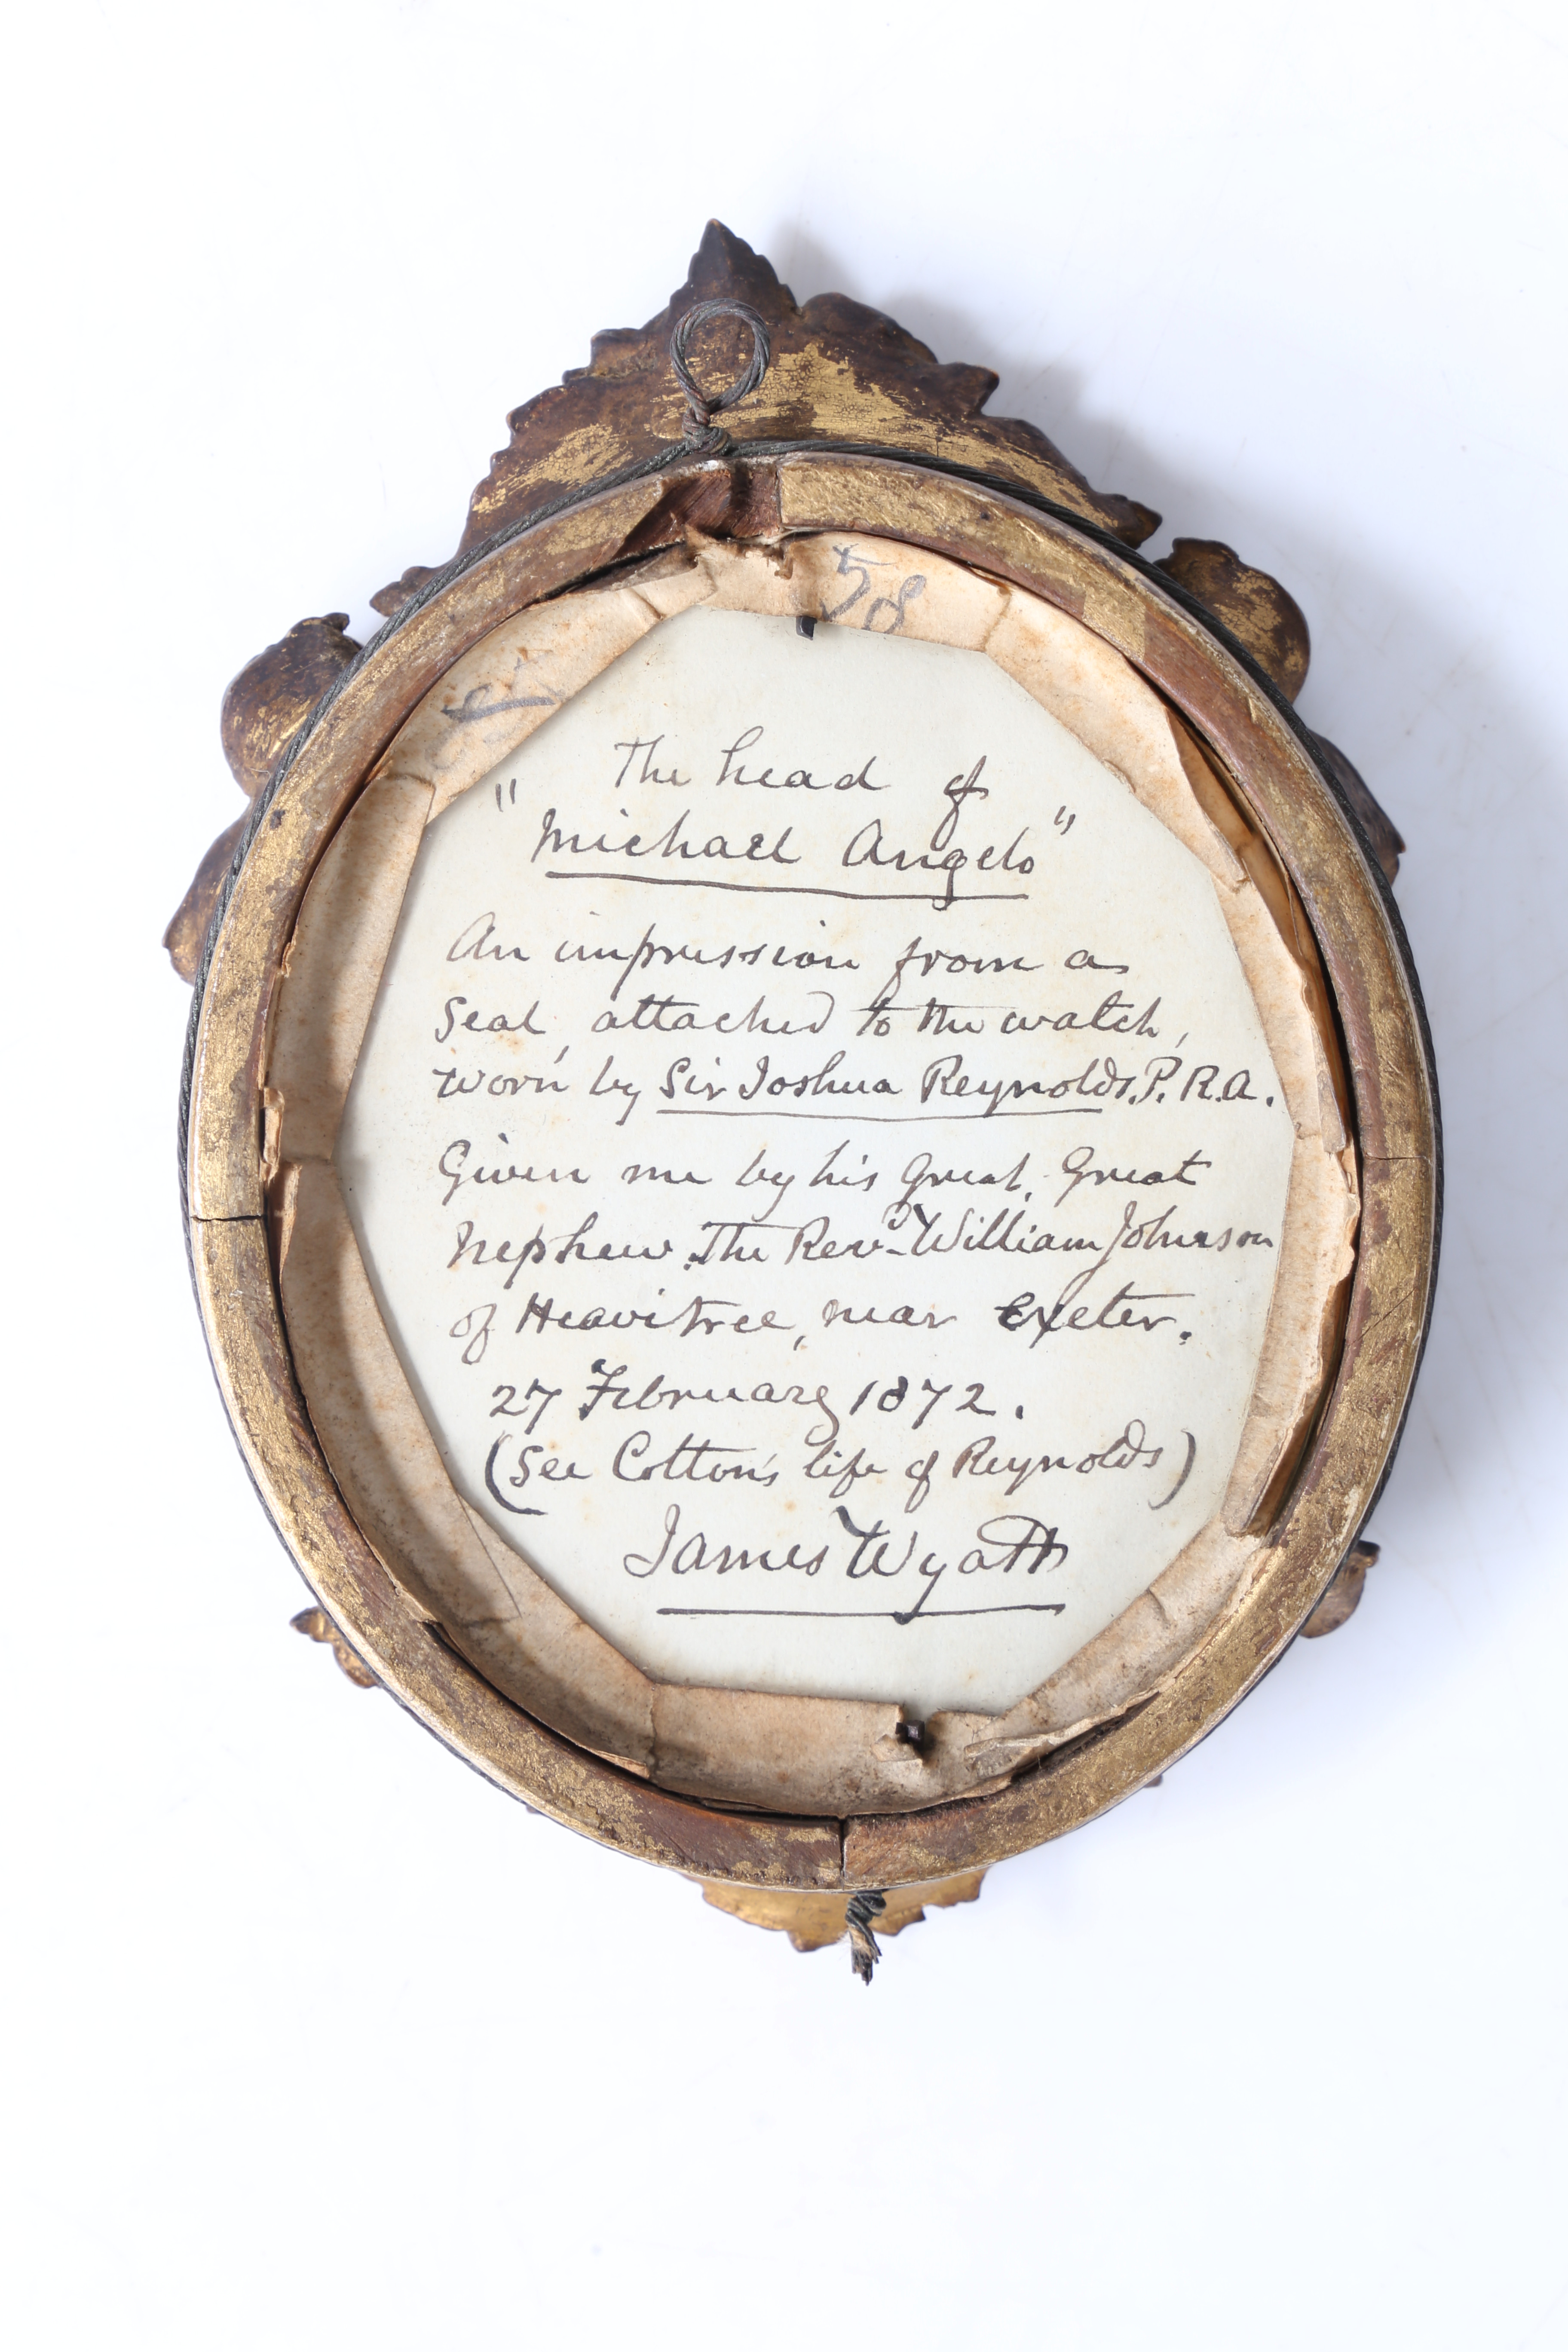 58
The head of
"Michael Angelo"
An impression from a
Seal, attached to the watch,
worn by Sir Joshua Reynolds. P. R. A.
Given me by his Great, Great
Nephew. The Revd. William Johnson
of Heavitree, near Exeter.
27 February 1872.
(See Cotton's life of Reynolds)
James Wyatt